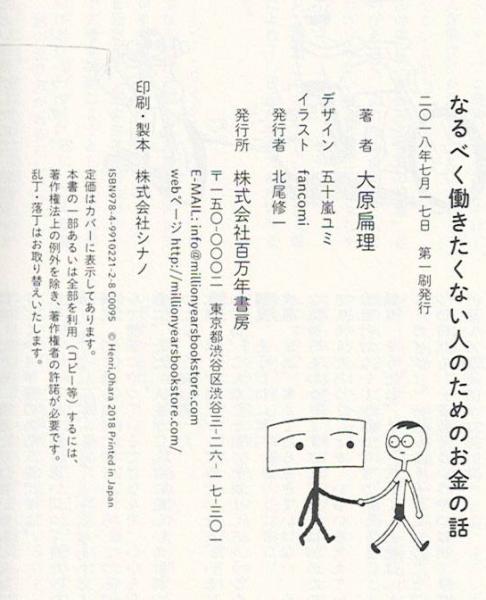 なるべく働きたくない人のためのお金の話
二〇一八年七月一七日　第一刷発行
著　者　大原扁理
デザイン　五十嵐ユミ
イラスト　fancomi
発行者　北尾修一
発行所　株式会社百万年書房
〒一五〇-〇〇〇二　東京都渋谷区渋谷三-二六-一七-三〇一
E-MAIL: info@millionyearsbookstore.com
webページ http://millionyearsbookstore.com/
印刷・製本　株式会社シナノ
ISBN978-4-9910221-2-8 C0095　© Henri,Ohara 2018 Printed in Japan
定価はカバーに表示してあります。
本書の一部あるいは全部を利用（コピー等）するには、
著作権法上の例外を除き、著作権者の許諾が必要です。
乱丁・落丁はお取り替えいたします。